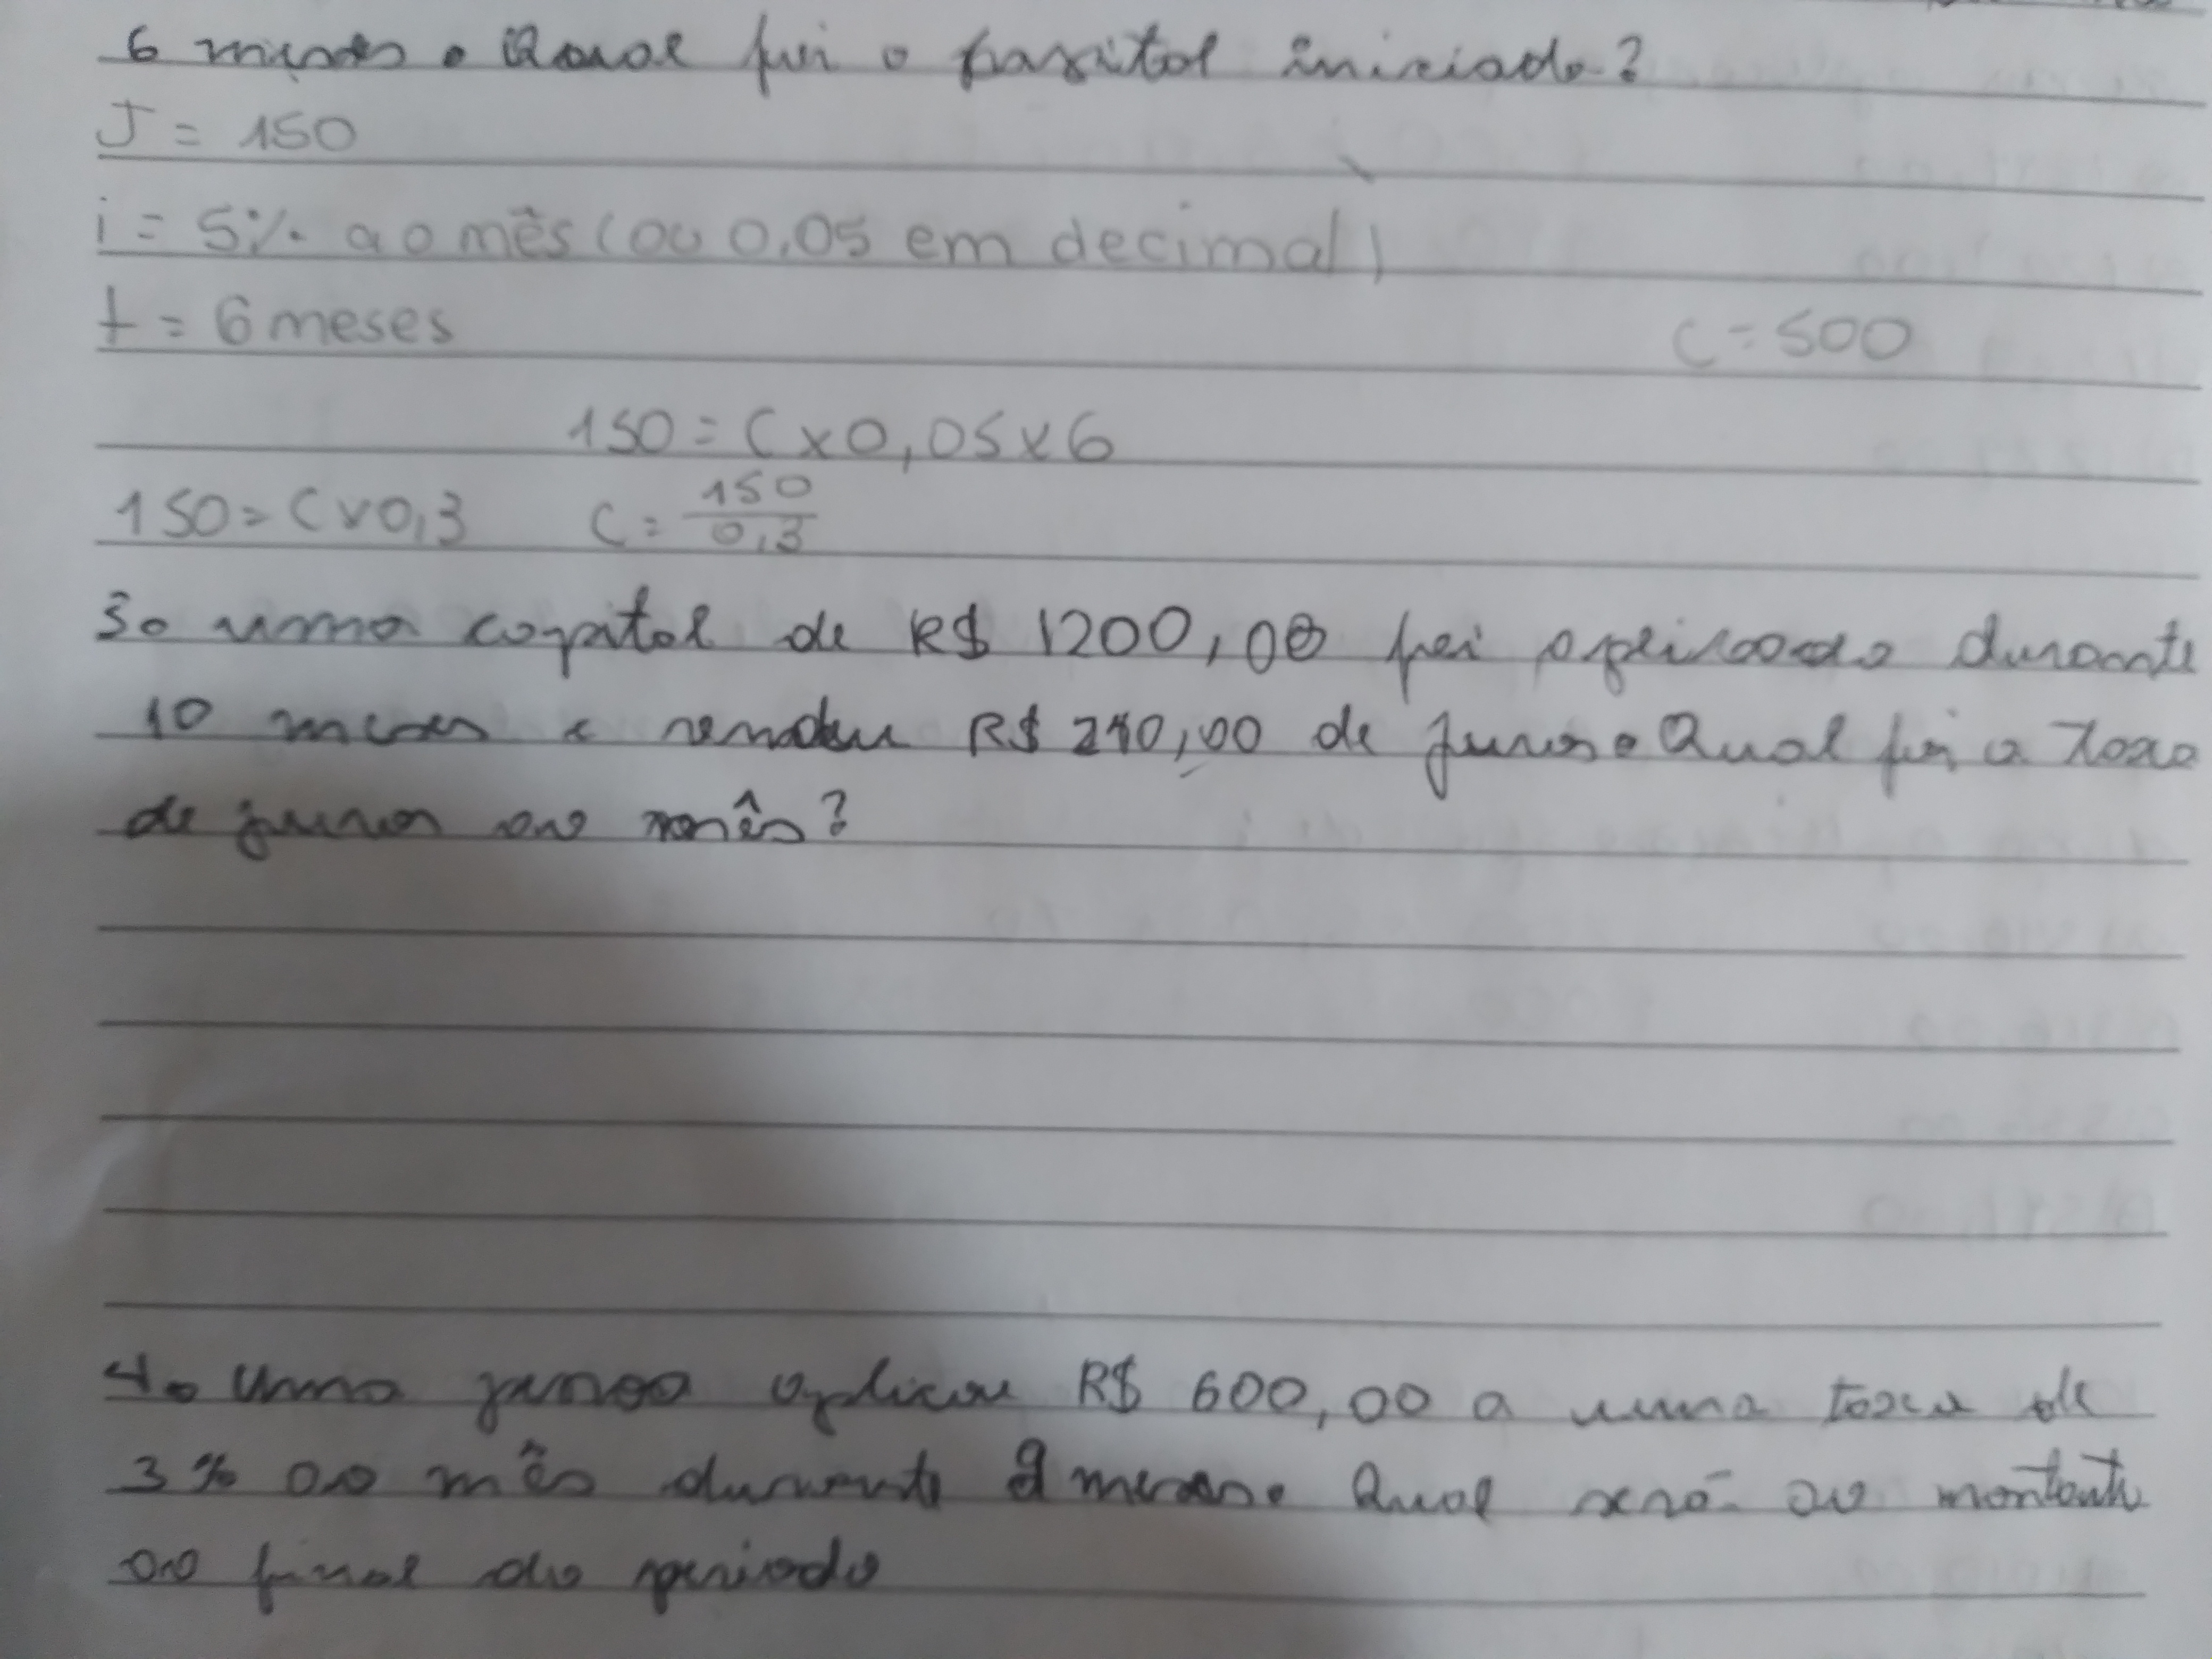 6 meses. Qual foi o capital iniciado?
J = 150
i = 5% ao mês (ou 0,05 em decimal)
t = 6 meses
C = 500
150 = C x 0,05 x 6
150 = C x 0,3 C = 150/0,3
3. uma capital de R$ 1200,00 foi aplicado durante
10 meses e rendeu R$ 240,00 de juros. Qual foi a Taxa
de juros ao mês?
4. Uma pessoa aplicou R$ 600,00 a uma taxa de
3% ao mês durante 9 meses. Qual será ao montante
ao final do periodo